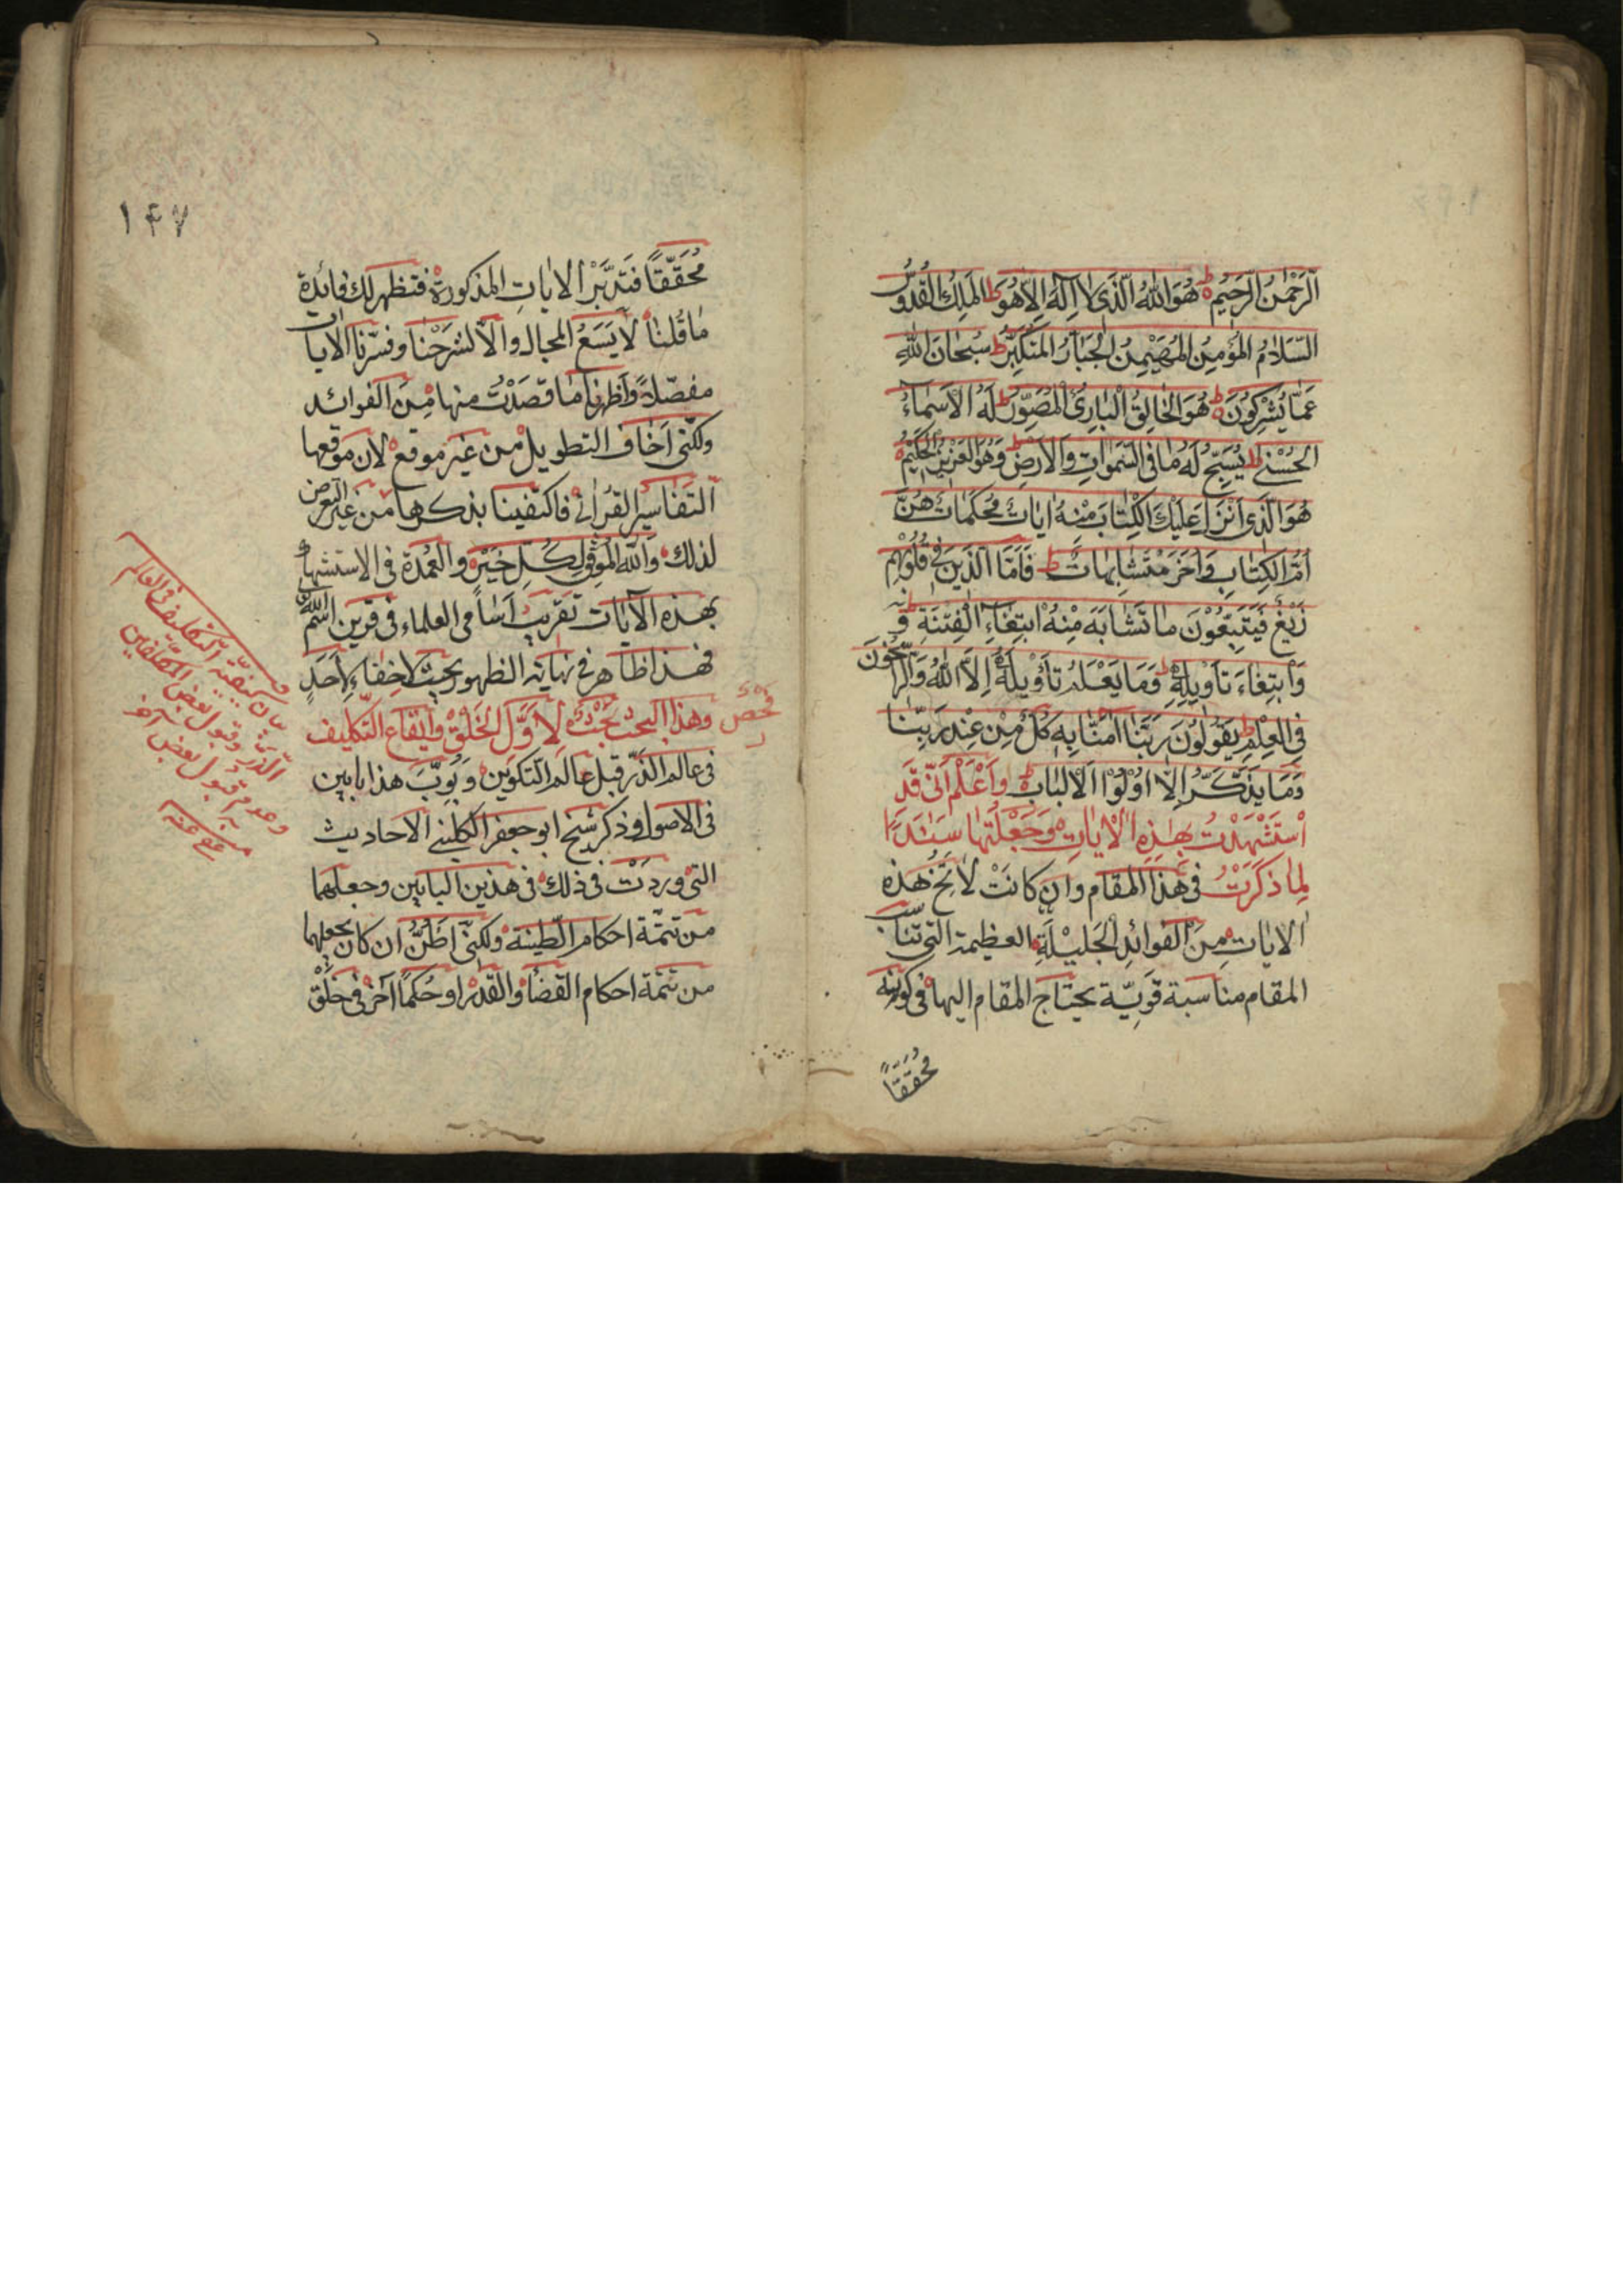 الرَّحْمٰنُ الرَّحِيمُ هُوَ اللّٰهُ الَّذى لَا اِلٰهَ اِلَّا هُوَ ط المَلِكُ القُدُّوسُ
السَّلَامُ المُؤمِنُ المُهَيْمِنُ الجَبَّارُ المُتَكَبِّرُ ط سُبْحَانَ اللّٰهِ
عَمَّا يُشْرِكُونَ هُوَ الخَالِقُ البَارِئُ المُصَوِّرُ ط لَهُ الاَسْمَاءُ
الحُسْنى ط يُسَبِّحُ لَهُ مَا فى السَّمٰوَاتِ وَالاَرْضِ وَهُوَ العَزِيزُ الحَكِيمُ
هُوَ الَّذى اَنْزَلَ عَلَيْكَ الكِتَابَ مِنْهُ ايَاتٌ مُحْكَمَاتٌ هُنَّ
اُمُّ الكِتَابِ وَاُخَرُ مُتَشَابِهَاتٌ ط فَاَمَّا الَّذِينَ فى قُلُوبِهِمْ
زَيْغٌ فَيَتَّبِعُوْنَ مَا تَشَابَهَ مِنْهُ ابْتِغَاءَ الفِتْنَةِ
وَابْتِغَاءَ تَأوِيلِهِ ط وَمَا يَعْلَمُ تَأوِيلَهُ اِلَّا اللّٰهُ وَالرَّاسِخُونَ
فِى العِلْمِ ط يَقُولُونَ رَبَّنَا امَنَّا بِهِ كُلٌّ مِنْ عِنْدِ رَبِّنَا
وَمَا يَذَّكَّرُ اِلَّا اُولُوْا الاَلْبَابِ وَاعْلَمْ اَنّى قَدِ
اسْتَشْهَدْتُ بِهٰذِهِ الايَاتِ وَجَعَلْتُهَا سَنَدًا
لِمَا ذَكَرْتُ فى هٰذَا المقام وان كانَتْ لَا تَخْ هٰذه
الايات مِنَ الفَوائدِ الجَلِيْلَةِ العظيمة التى تناسب
المقام مناسبة قَوِيَّة يحتاج المقام اليها فى كونه
مُحَقَّقًا
١۴٧
مُحَقَّقًا فَتَدَبَّرْ الايَاتِ المذكورة فتظهر لك فائدة
مَا قُلنَا لَا يَسَعُ المجال والّا لشَرَحْنَا وفسّرنا الايات
مفصّلاً وَاَظهرنا مَا قصَدْتُ منها مِنَ الفوائد
ولكنّى اَخَاف التطويل من غير موقع لان موقعها
التفاسير القرانى فاكتفينا بذكرها من غير التعرض
لذلك وَاللّٰه المُوفّق لِكُلِّ خَيْرٍ والعُمْدة فى الاستشهاد
بهذه الآيات تقريب اَسَامى العلماء فى قرين اسْم اللّٰه
فهذا ظاهر فى نهاية الظهور بحيث لا خِفاء لِاَحَدٍ
فَحص وهٰذا البحث بَحْثٌ لِاَوَّل الخَلْقِ وايقاع التّكليف
فى عالم الذَّر قبل عالم التكوين وَبُوِّبَ هذا بابين
فى الاصول وذكر شيخ ابو جعفر الكلينى الاحاديث
التى وردَتْ فى ذلك فى هذين البابين وجعلهما
من تتمّة احكام الطّينة ولكنّى اَظُنُّ ان كان يجعلهما
من تتمّة احكام القضا والقدر او حُكمًا آخر فى خَلْق
بيان كيفيّة التكليف فى العالم
الذر وقبول بعض المكلّفين
وعدم قبول بعض آخر
منه عفى عنه